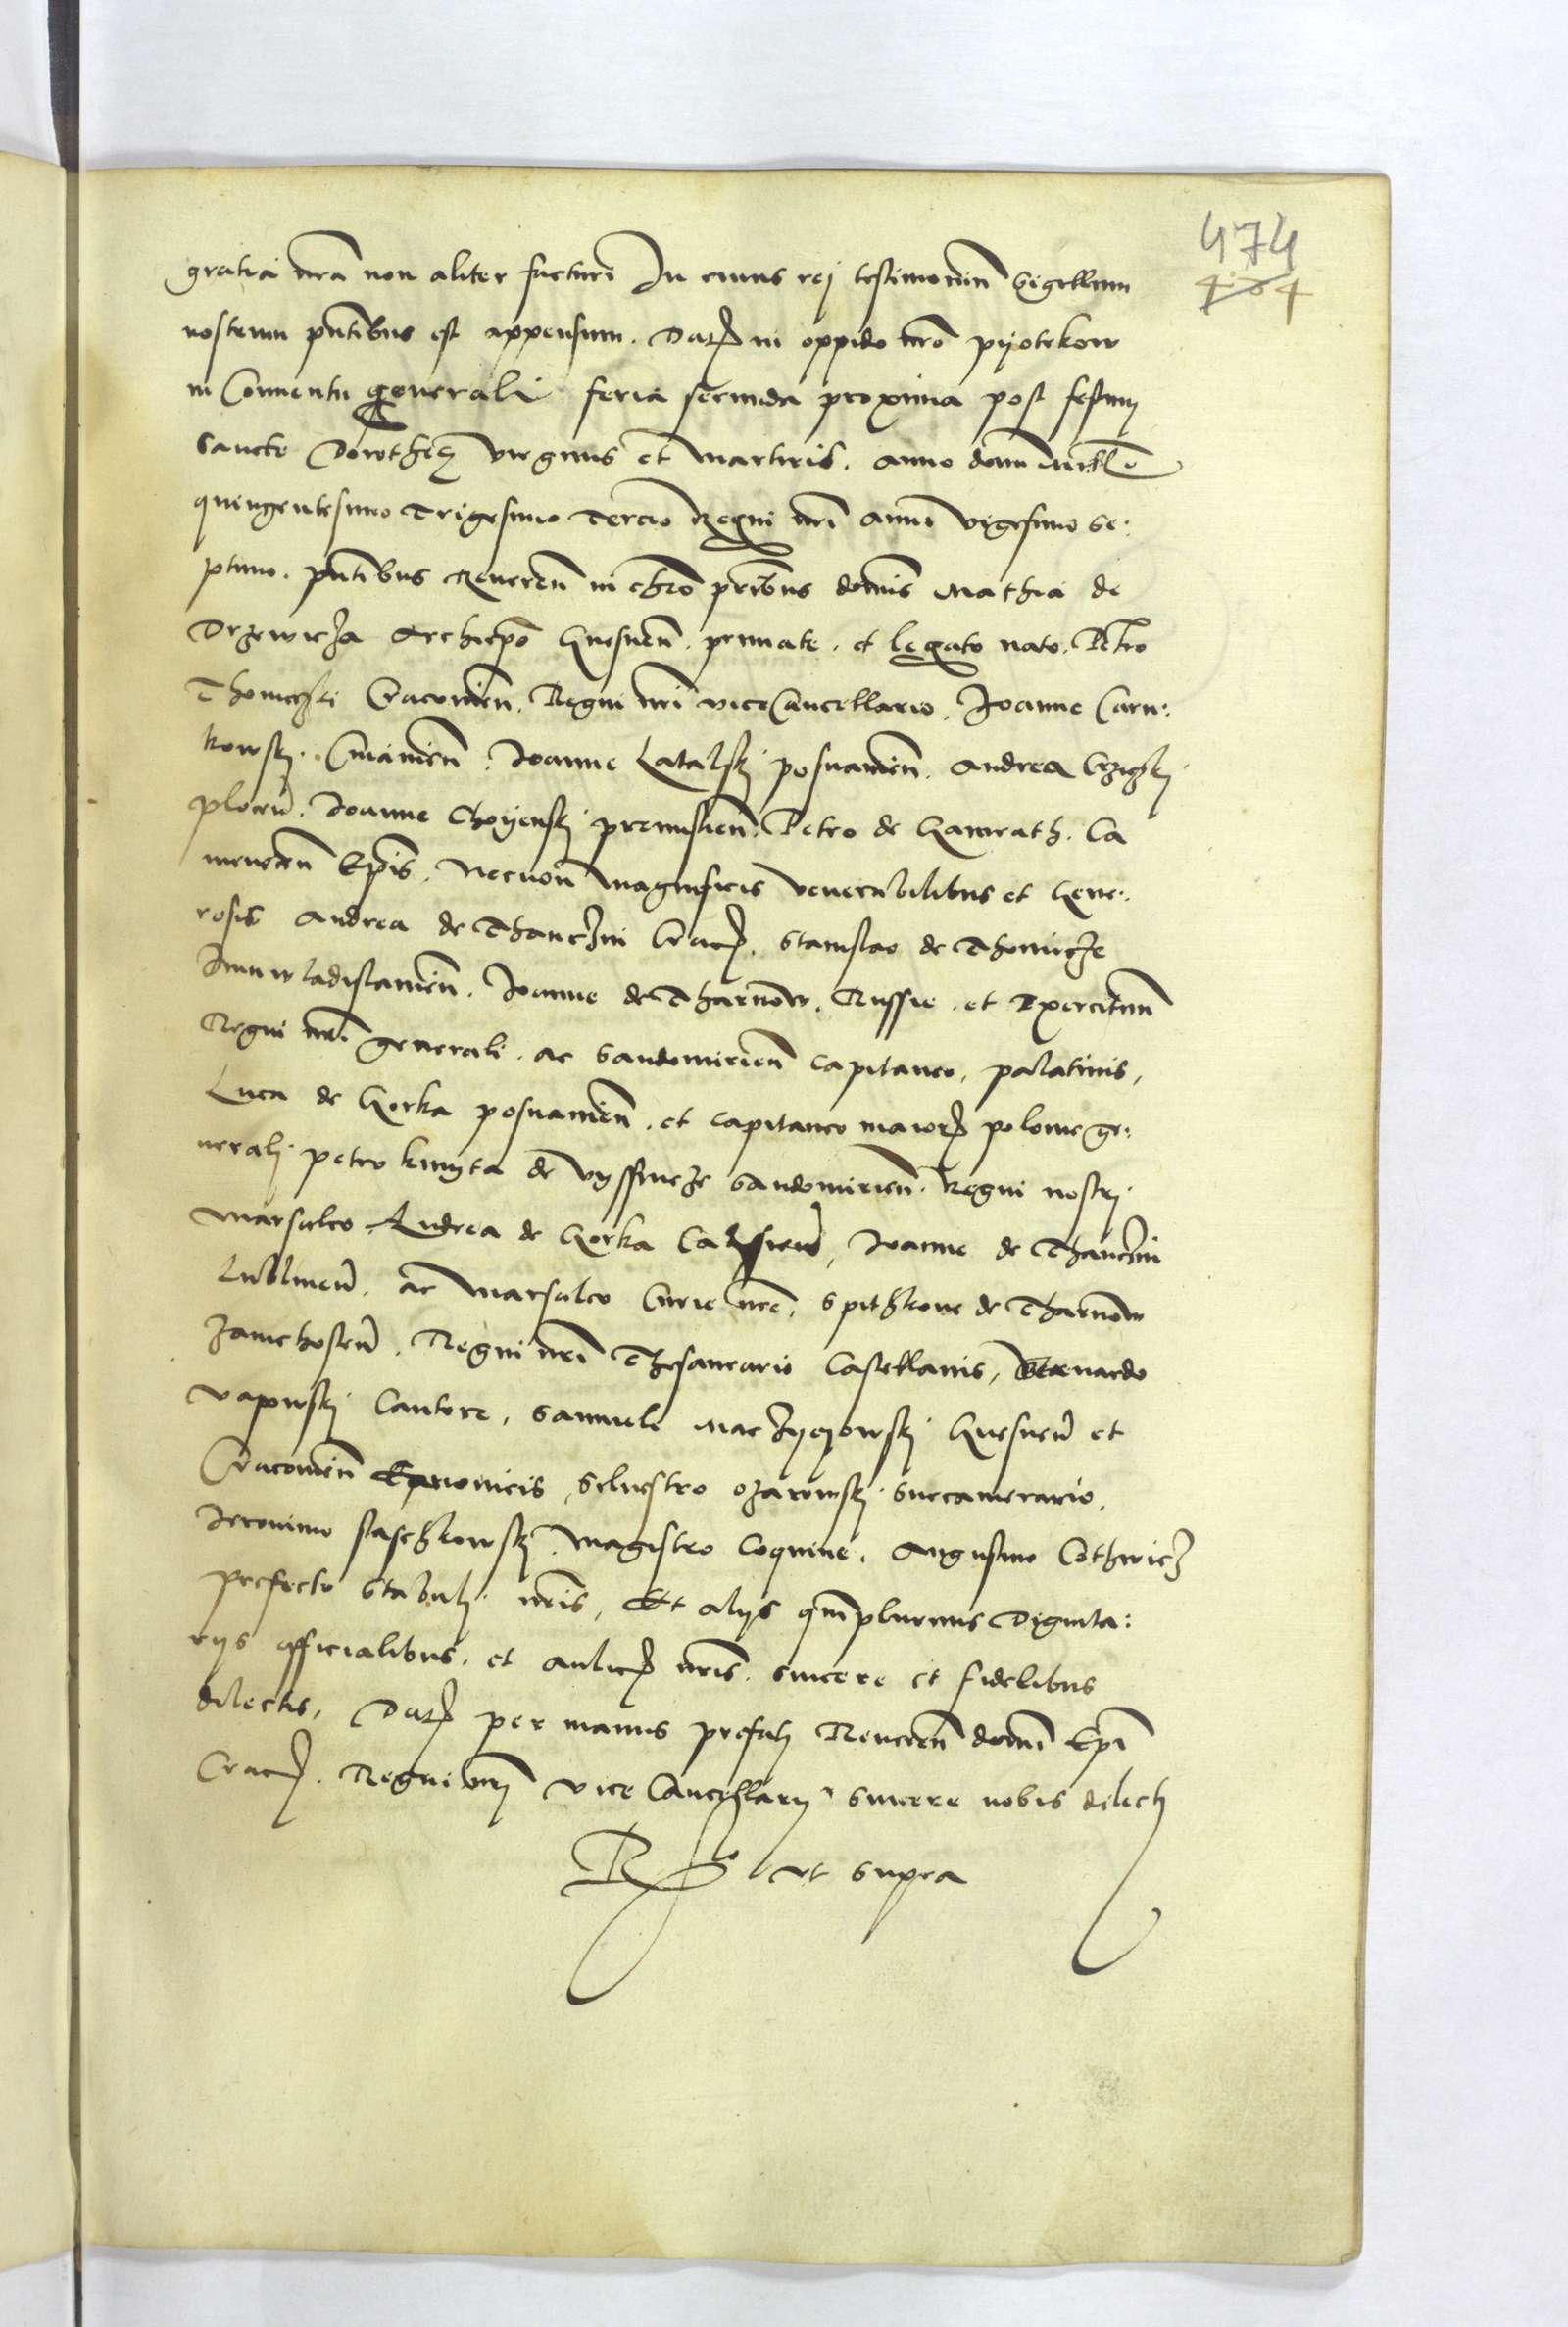 474
464
gratia nrã non aliter facturi In cuius rei testimoniũ Sigellum
nostrum pñtibus est appensum. Datum in oppido nrõ pyotrkow
in Conuentu generali feria secunda proxima post festum
Sancte Dorothee virginis et martiris. Anno domi Millõ
quingentesimo Trigesimo Tercio Regni nrĩ anni vigesimo se:
ptimo. pñtibus Reuereñ in chrõ pribus domis Mathia de
Drzewicza Archiepõ Gnesneñ. primate. et legato nato. Petro
Thomiczki Cracovieñ. Regni nrĩ viceCancellario, Joanne Carn:
kowski. Cuiavieñ. Joanne Latalski posnanieñ. Andrea Crziczki
ploceñ. Joanne Choyenski premislieñ. Petro de Gamrath. Ca
meneceñ Epis. Necnon Magnificis Venerabilibus et Gene:
rosis Andrea de Thanczin Cracovien. Stanislao de Thomicze
Juniwladislavieñ. Joanne de Tharnow. Russie. et Exercituũ
Regni nrĩ generali. ac Sandomirieñ capitaneo, palatinis,
Luca de Gorka posnanieñ. et capitaneo maioris polonie ge:
nerali. petro kmyta de Vyssnicze Sandomirieñ. Regni nostri
Marsalco Andrea de Gorka Calisieñ, Joanne de Thanczin
Lublineñ. ac Marsalco Curie nrẽ, Spithkone de Tharnow
Zawichosteñ. Regni nrĩ Thesaurario Castellanis, Bernardo
Vapowski Cantore, Samuele Macziyeyowski Gnesneñ et
Cracovieñ Canonicis, Siluestro ozarowski Succamerario,
Jeronimo staschkowski Magistro Coquine. Augustino Cothwicz
prefecto Stabuli nrĩs, Et alijs qmplurimis Dignita:
rijs officialibus. et aulicis nrĩs. sincere et fidelibus
dilectis, Datum per manus prefati Reuereñ domĩ Epĩ
Cracovien. Regni nrĩ Vice Cancellarij sincere nobis dilecti
Rᵒ ut supra